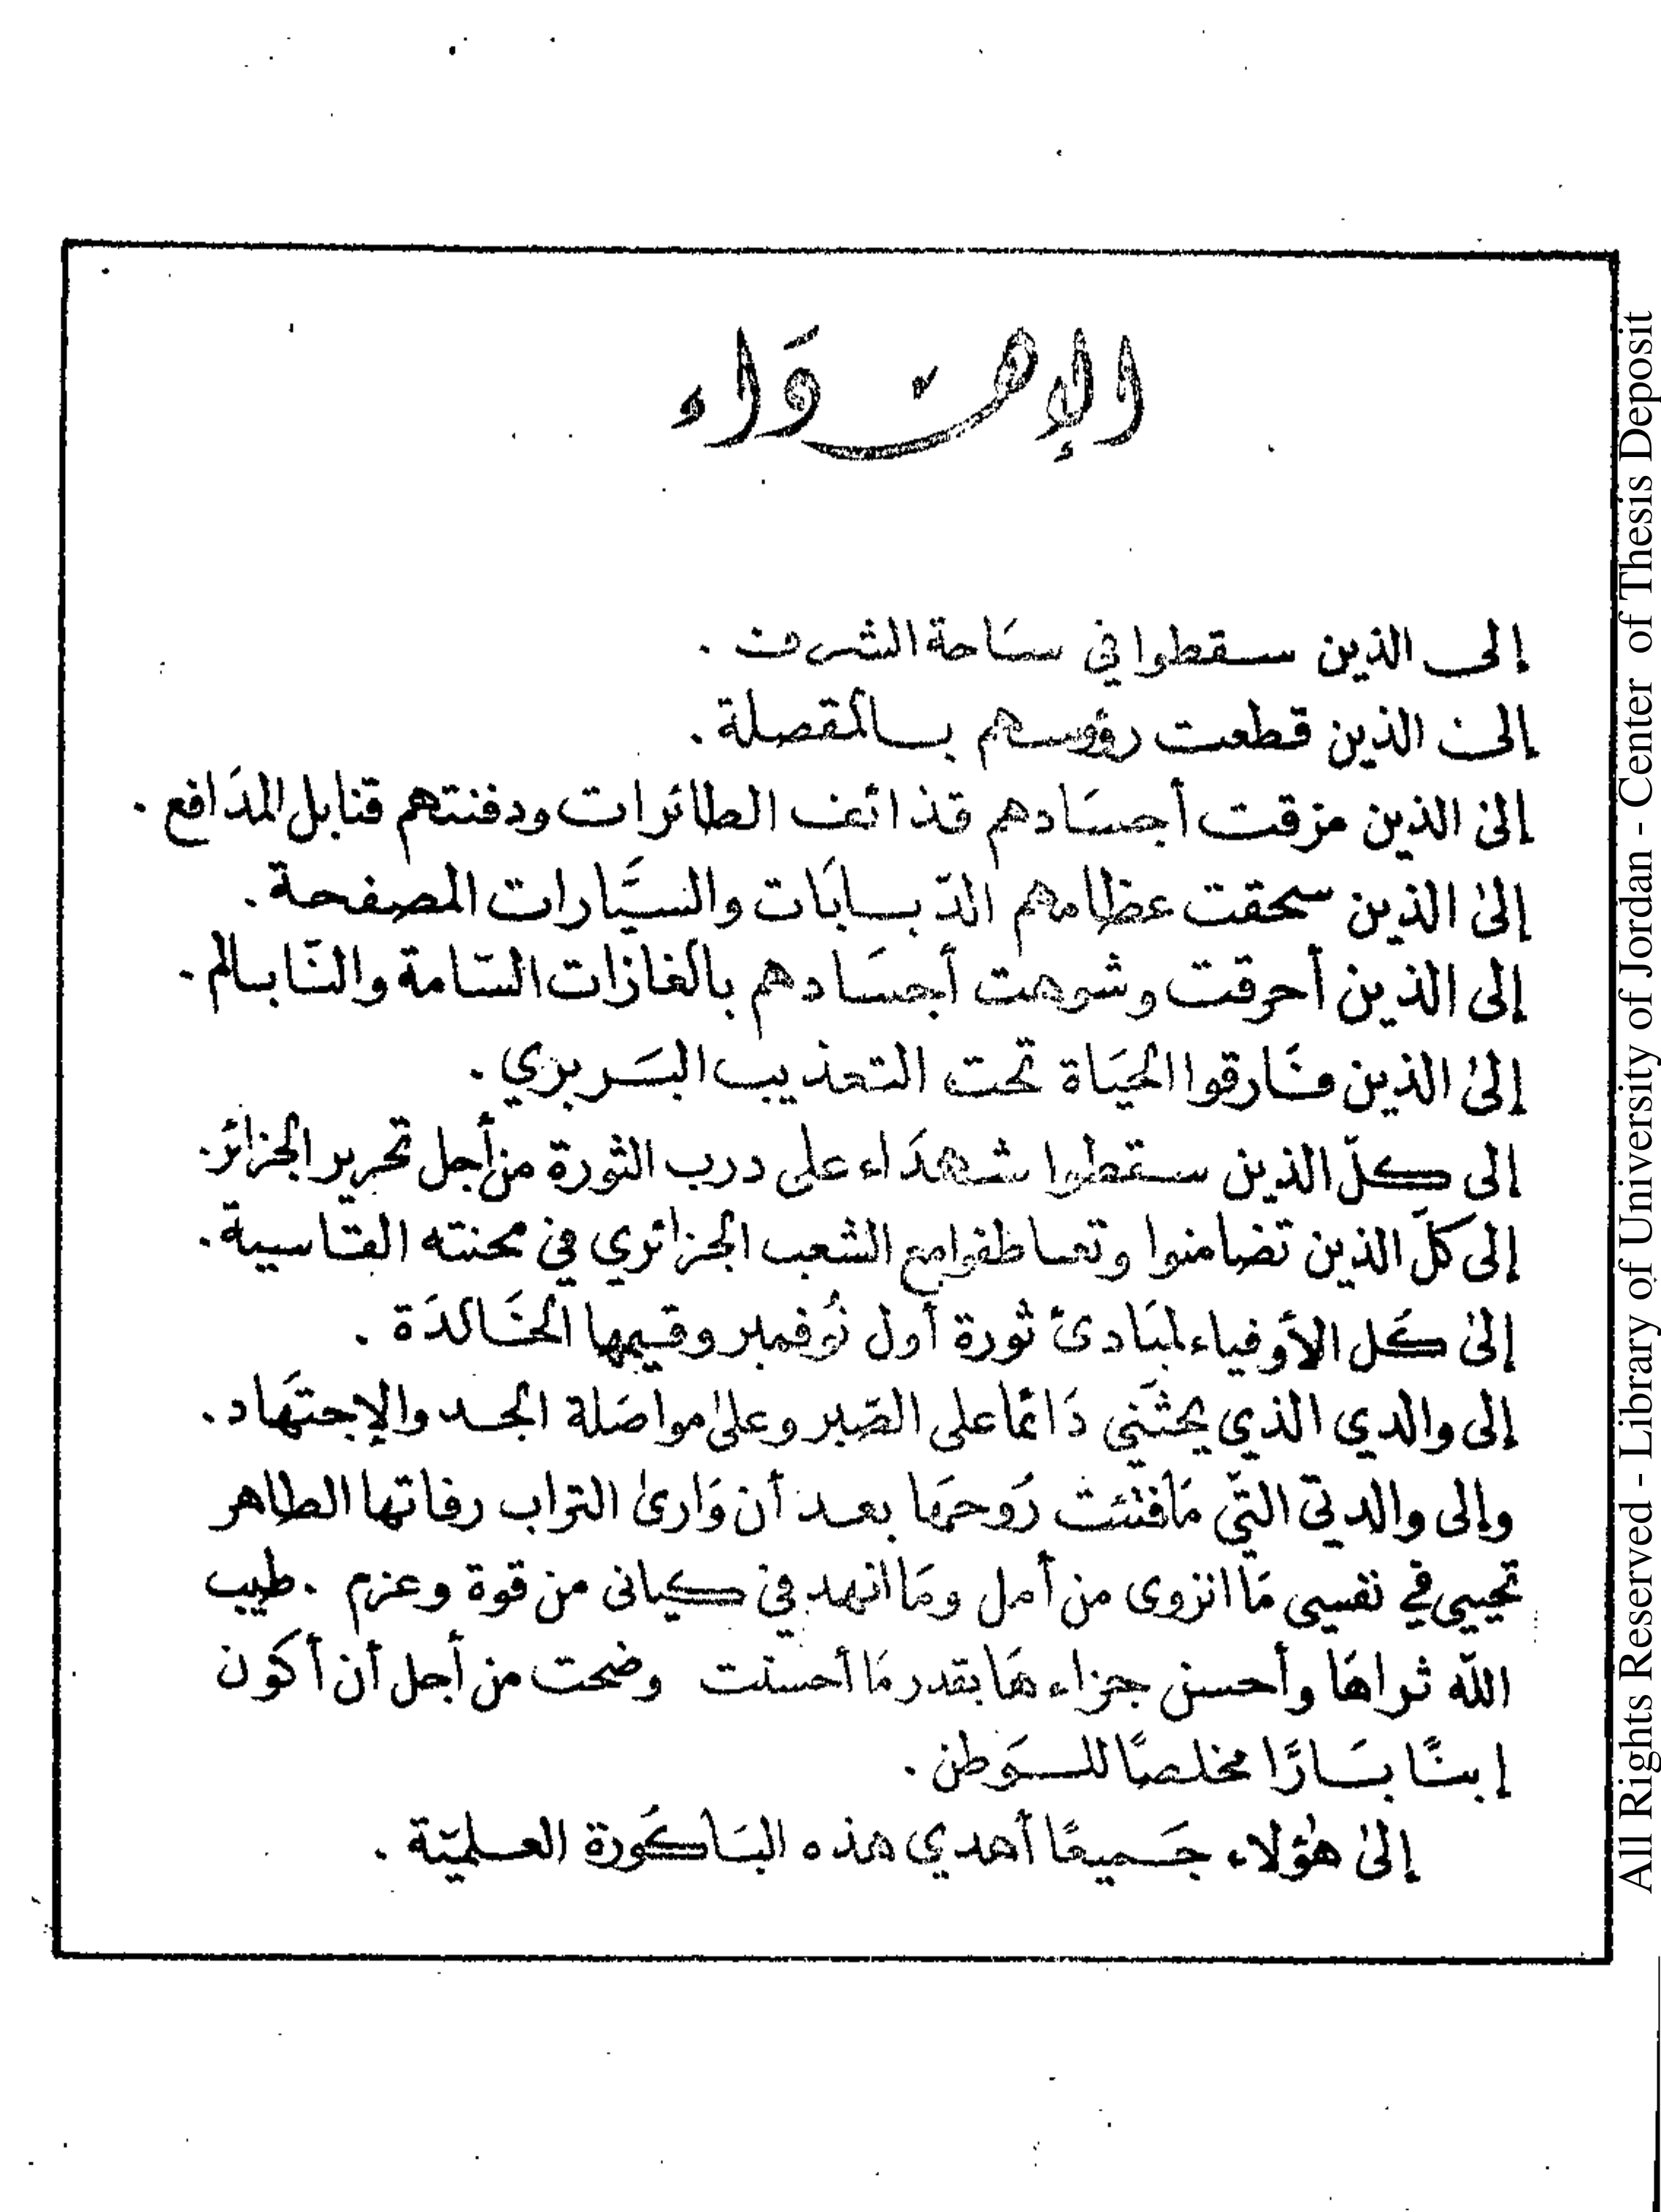 الإهـداء
إلى الذين سقطوا في سَاحة الشرف .
إلى الذين قطعت رؤوسهم بالمقصلة .
إلىٰ الذين مزقت أجسَادهم قذائف الطائرات ودفنتهم قنابل المدَافع .
إلىٰ الذين سحقت عظامهم الدّبابَات والسيَّارات المصفحة .
إلى الذين أحرقت وشوهت أجسَادهم بالغازات السّامة والنّابالم .
إلىٰ الذين فَارقوا الحيَاة تحت التعذيب البَربري .
إلى كلّ الذين سقطوا شهدَاء على درب الثورة من أجل تحرير الجزائر .
إلى كلّ الذين تضامنوا وتعاطفوا مع الشعب الجزائري في محنته القاسية .
إلىٰ كَل الأوفياء لمبَادئ ثورة أول نُوفمبر وقيمها الخَالدَة .
إلى والدي الذي يحثّني دَائما على الصّبر وعلىٰ مواصَلة الجد والإجتهَاد .
وإلى والدتي التّي مَافتئت رُوحهَا بعد أن وَارىٰ التراب رفاتها الطاهر
تحيي في نفسي مَا انزوى من أمل ومَا انهد في كياني من قوة وعزم . طيب
اللّه ثراهَا وأحسن جزاءهَا بقدر مَا أحسنت وضحت من أجل أن أكون
إبنًا بَارًا مخلصًا للوَطن .
إلىٰ هٰؤلاء جَميعًا أهدي هذه البَاكُورة العلميّة .
All Rights Reserved - Library of University of Jordan - Center of Thesis Deposit